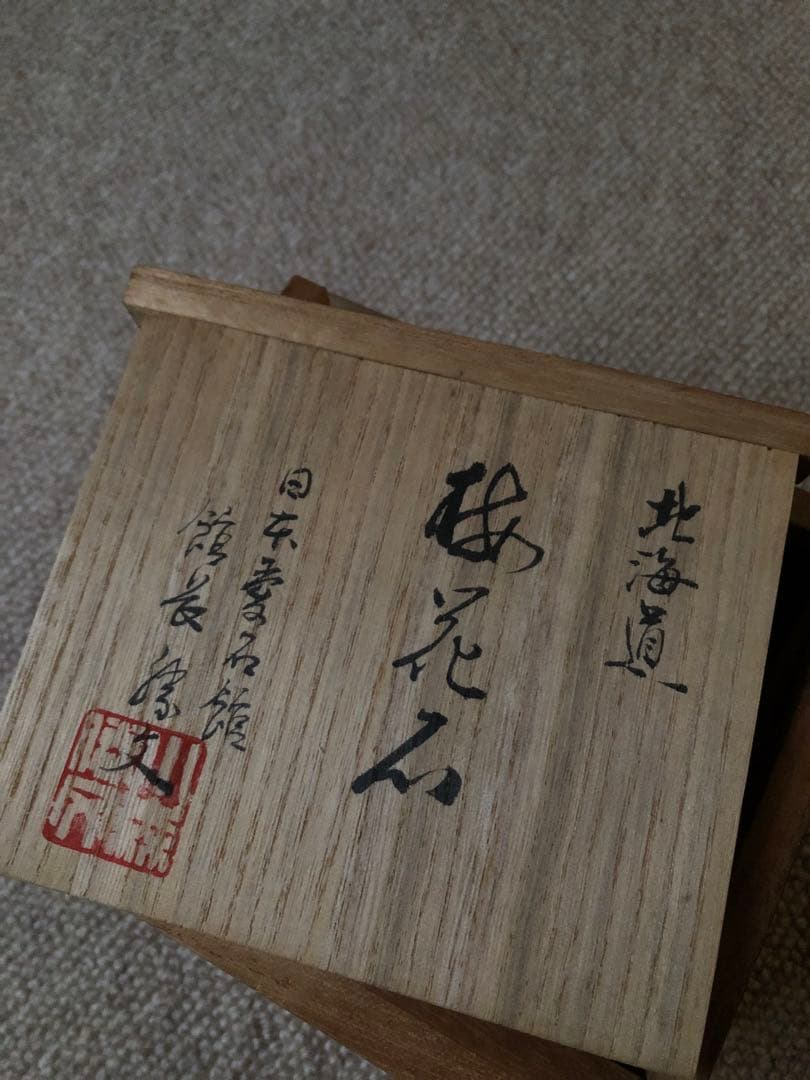 北海道
梅花石
日本愛石館
館長 勝文